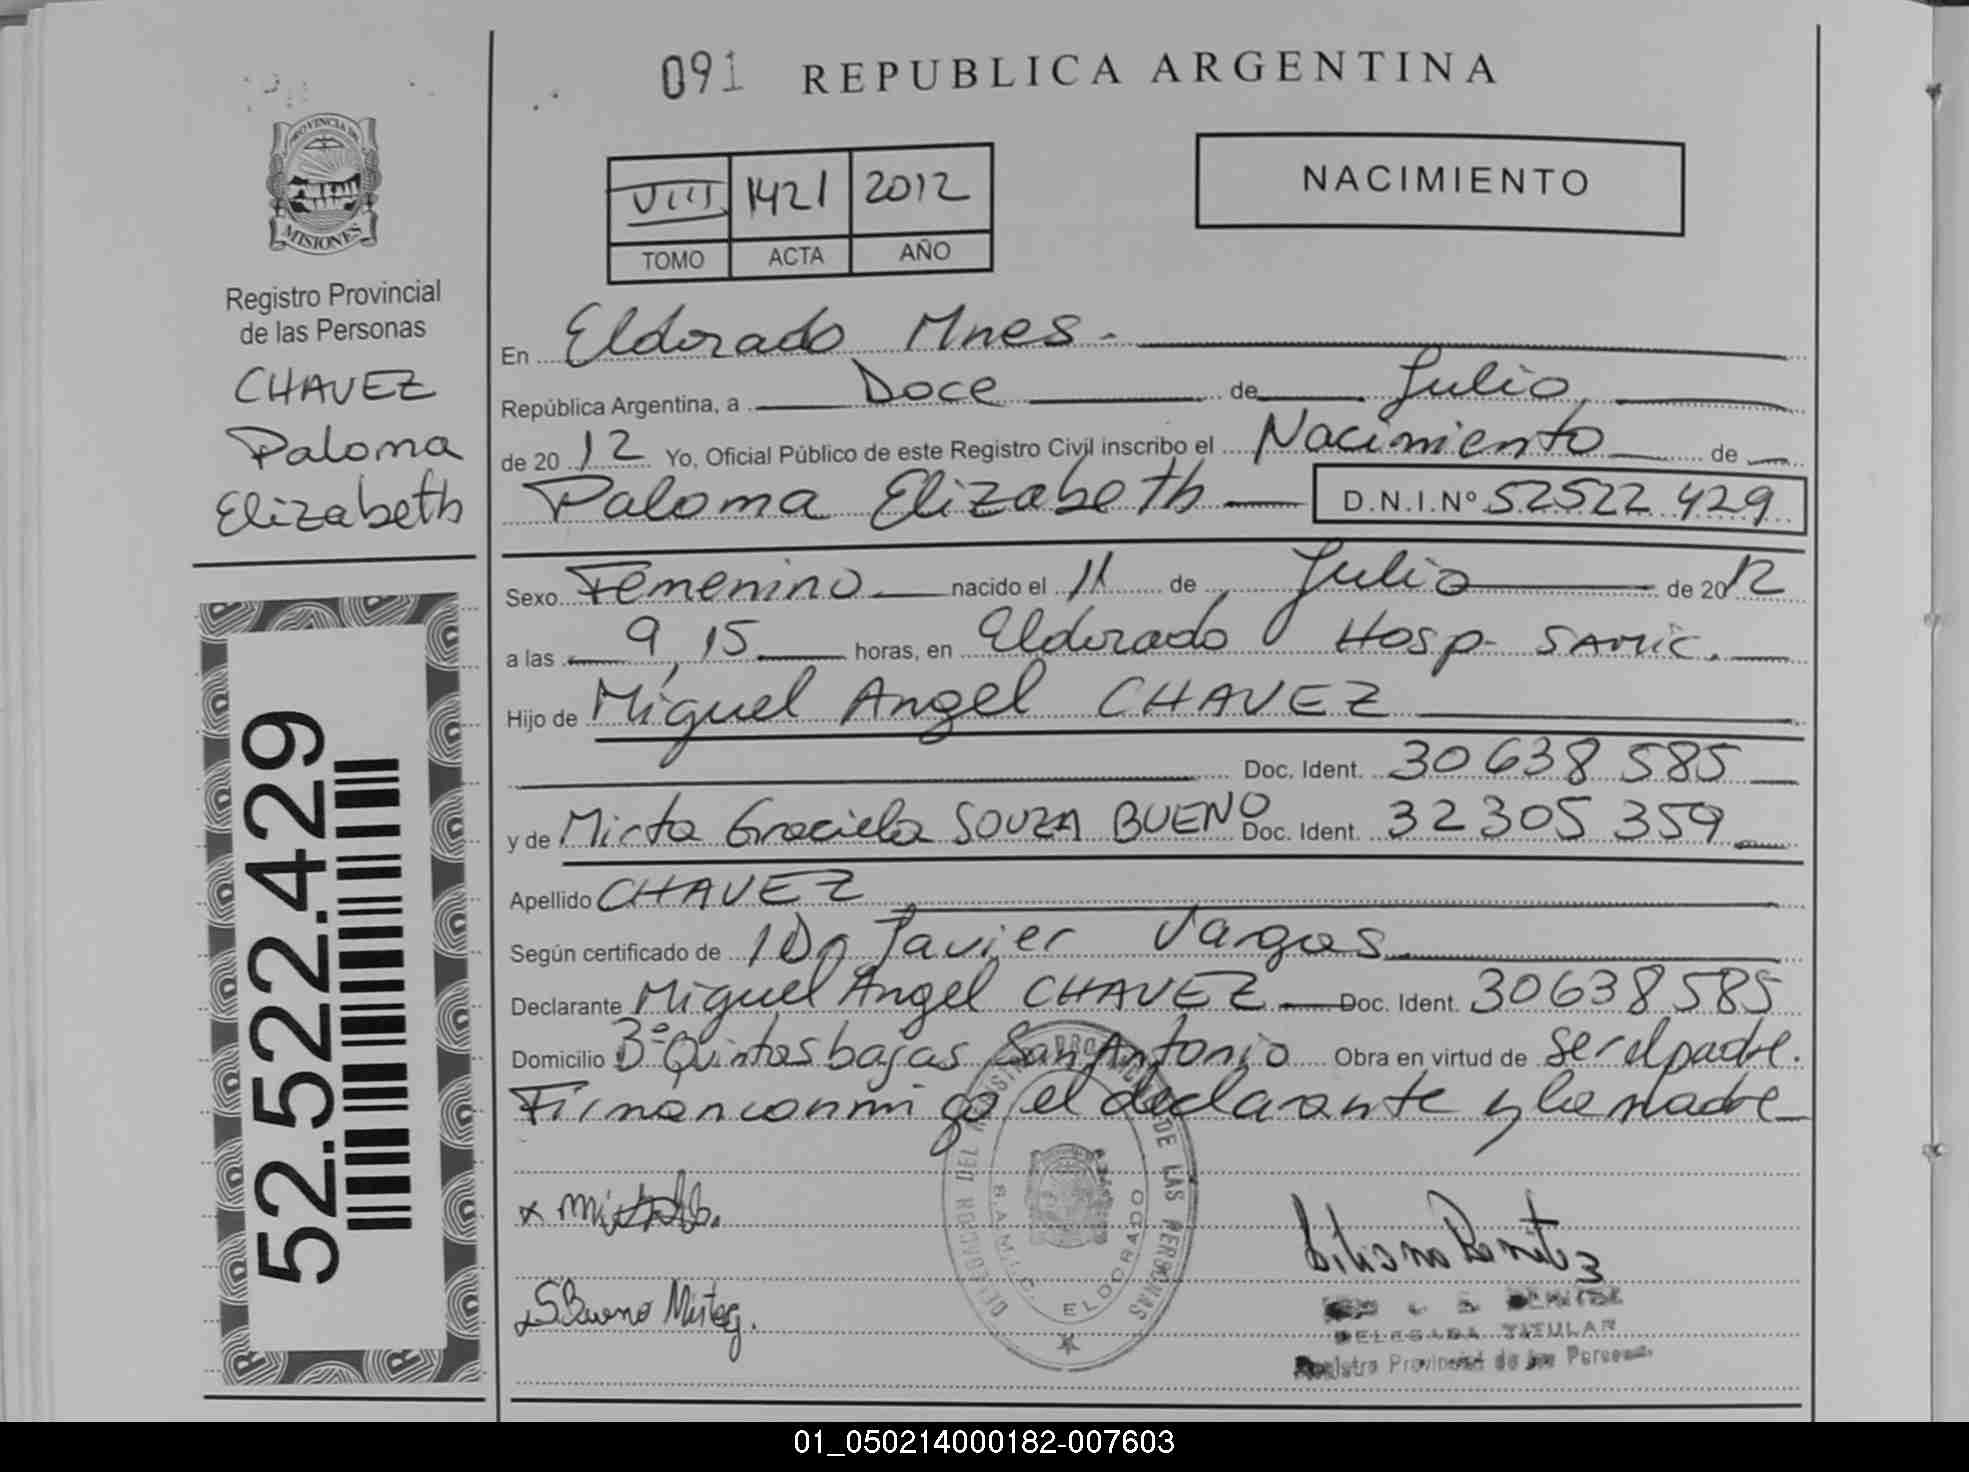 091 REPUBLICA ARGENTINA
PROVINCIA DE
MISIONES
Registro Provincial
de las Personas
CHAVEZ
Paloma
Elizabeth
52.522.429
VIII 1421 2012
TOMO ACTA AÑO
NACIMIENTO
En Eldorado Mnes.
República Argentina, a Doce de Julio
de 2012 Yo, Oficial Público de este Registro Civil inscribo el Nacimiento de
Paloma Elizabeth D.N.I.Nº 52522429
Sexo Femenino nacido el 11 de Julio de 2012
a las 9,15 horas, en Eldorado Hosp. SAMIC.
Hijo de Miguel Angel CHAVEZ
Doc. Ident. 30638585
y de Mirta Graciela SOUZA BUENO Doc. Ident. 32305359
Apellido CHAVEZ
Según certificado de Javier Vargas
Declarante Miguel Angel CHAVEZ Doc. Ident. 30638585
Domicilio 3º Quintas bajas San Antonio Obra en virtud de ser el padre.
Firman conmigo el declarante y la madre
DELEGACION DEL REGISTRO PROVINCIAL DE LAS PERSONAS
S.A.M.I.C. ELDORADO
x
S Bueno
Liliana Benitez
BENITEZ
DELEGADA TITULAR
Registro Provincial de las Personas
01_050214000182-007603